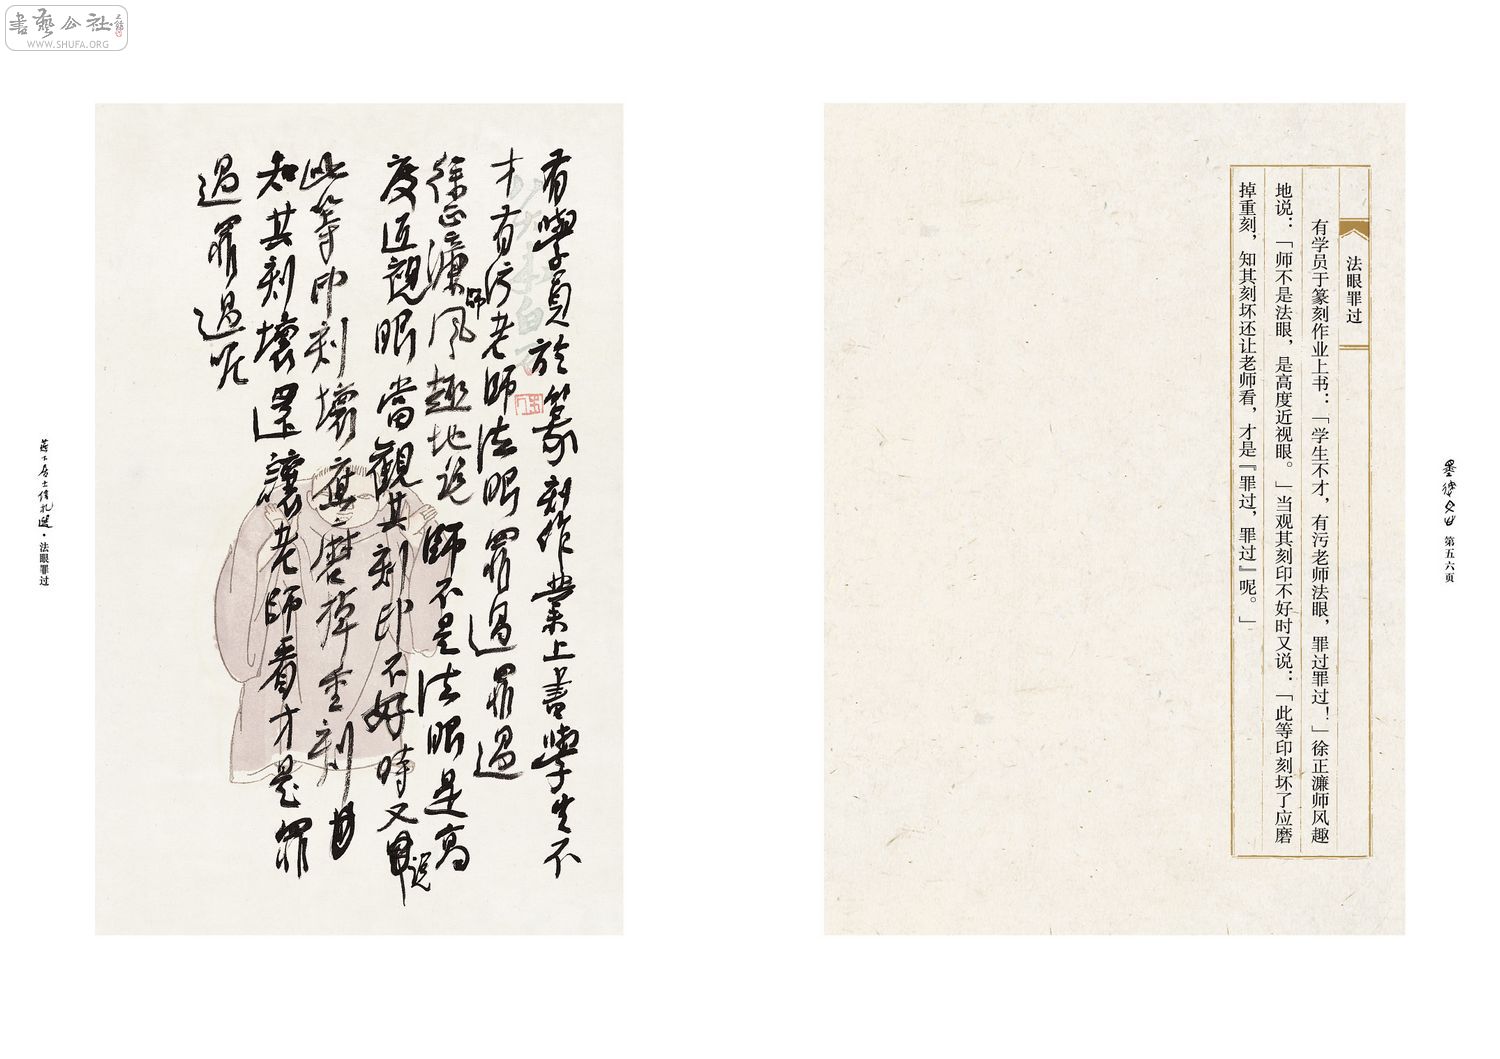 書藝公社
WWW.SHUFA.ORG
法眼罪过
有学员于篆刻作业上书：「学生不才，有污老师法眼，罪过罪过！」徐正濂师风趣
地说：「师不是法眼，是高度近视眼。」当观其刻印不好时又说：「此等印刻坏了应磨
掉重刻，知其刻坏还让老师看，才是『罪过，罪过』呢。」
第五六页
有學員於篆刻作業上書學生不
才有污老師法眼罪過罪過
徐正濂師風趣地说師不是法眼是高
度近視眼當觀其刻印不好時又说
此等印刻壞應磨掉重刻
知其刻壞還讓老師看才是罪
過罪過呢
·法眼罪过